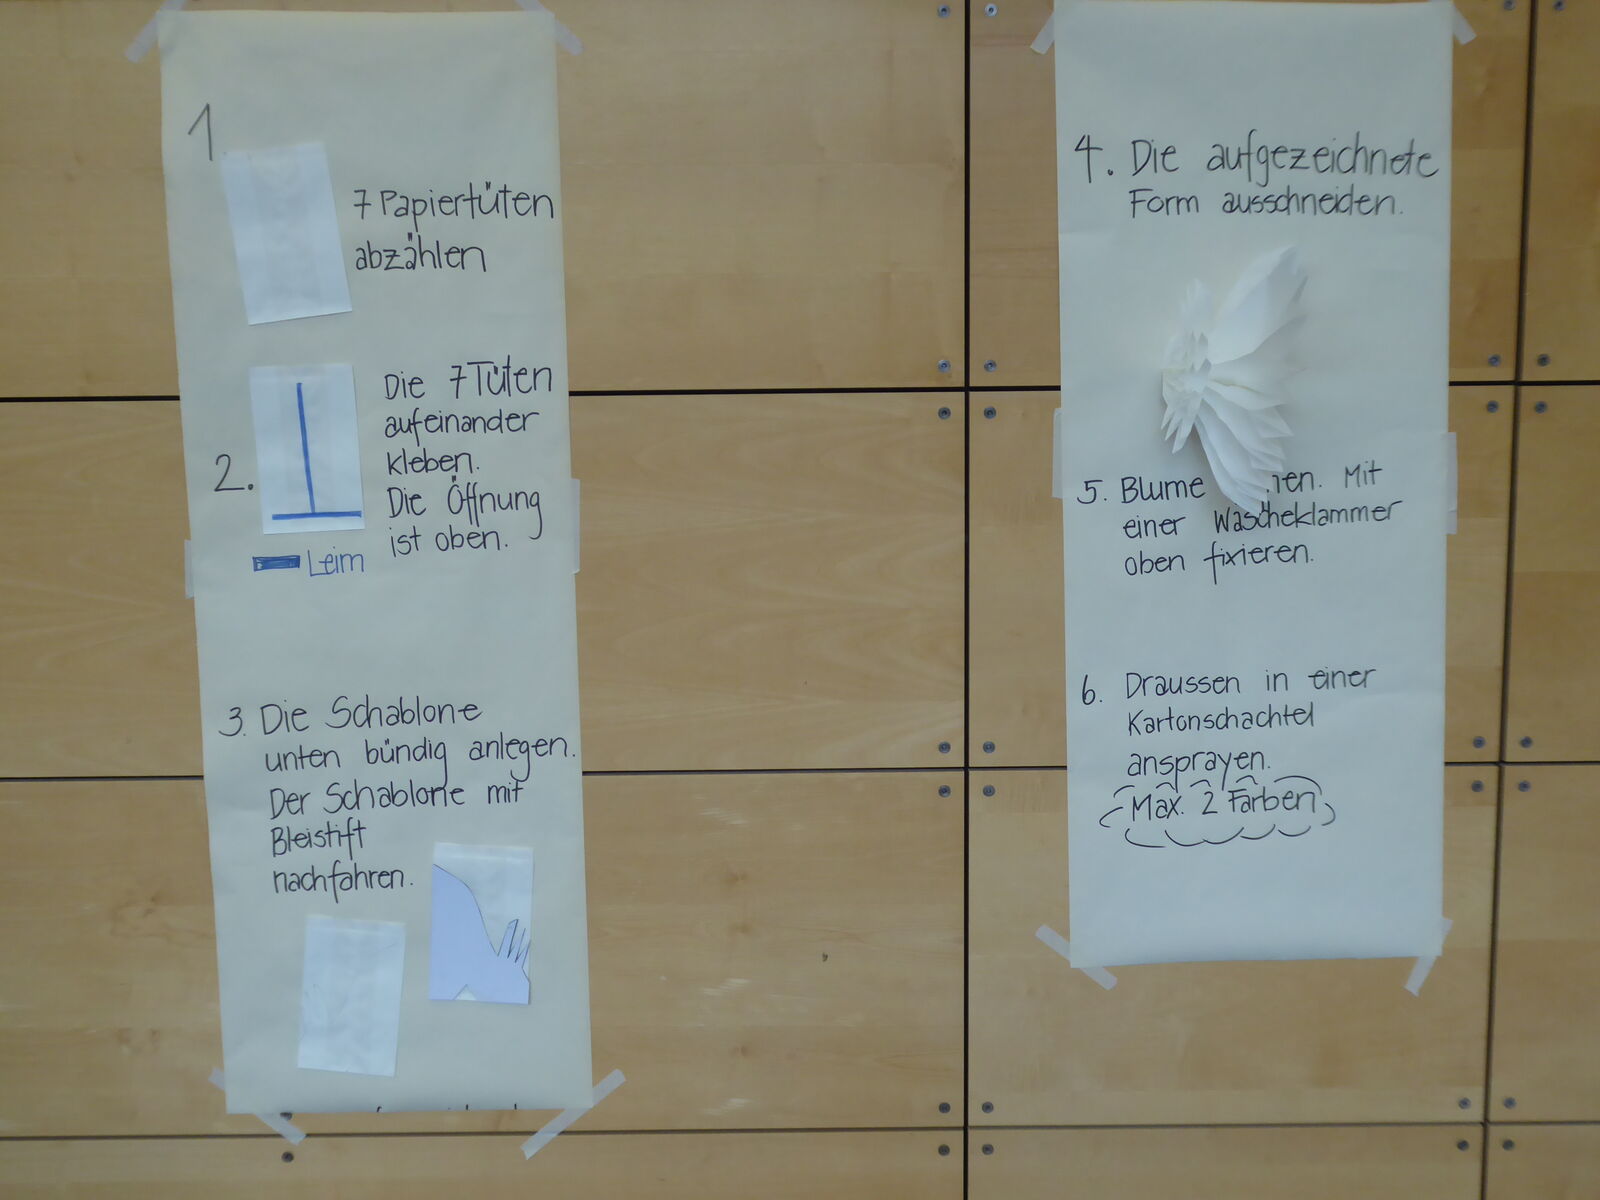 1.
7 Papiertüten
abzählen
2.
Die 7 Tüten
aufeinander
kleben.
Die Öffnung
ist oben.
Leim
3. Die Schablone
unten bündig anlegen.
Der Schablone mit
Bleistift
nachfahren.
4. Die aufgezeichnete
Form ausschneiden.
5. Blume Mit
einer Wäscheklammer
oben fixieren.
6. Draussen in einer
Kartonschachtel
ansprayen.
Max. 2 Farben